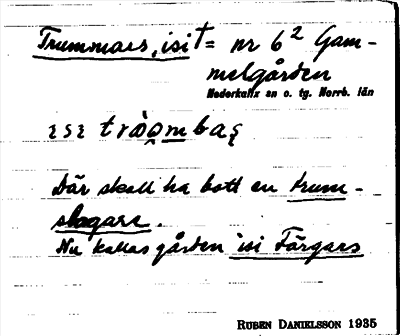 Trummars, isi † = nr 6² Gam-
melgården
Nederkalix sn o. tg. Norrb. län
Där skall ha bott en trum-
slagare.
Nu kallas gården isi Färgars
RUBEN DANIELSSON 1935